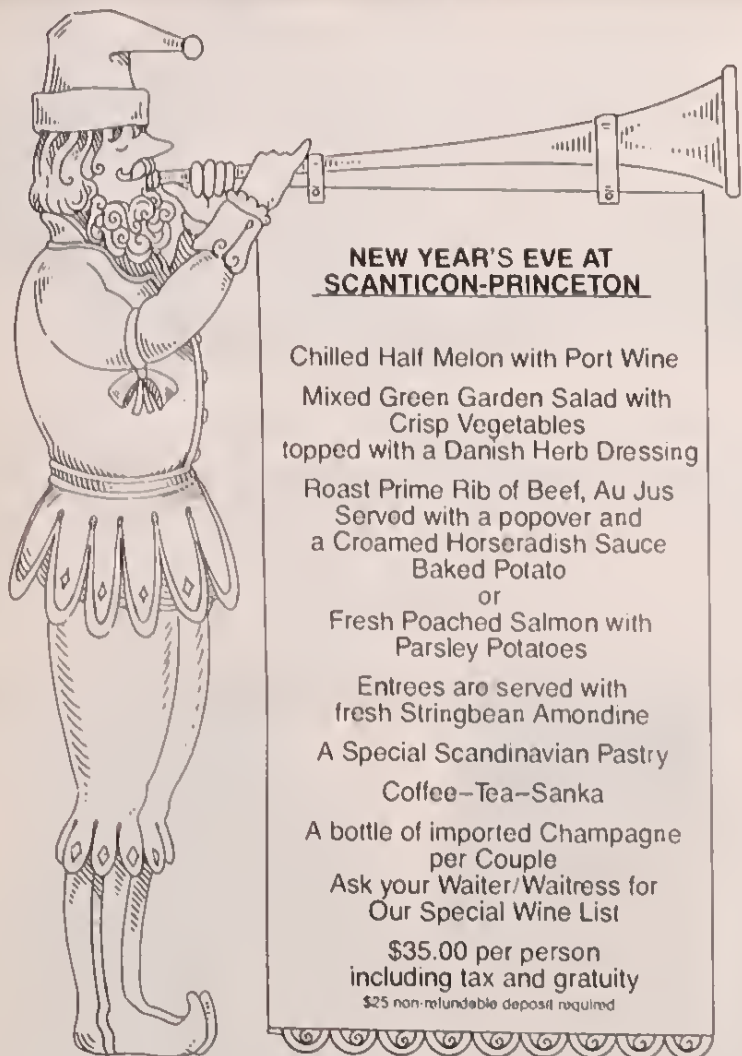 NEW YEAR'S EVE AT
SCANTICON-PRINCETON
Chilled Half Melon with Port Wine
Mixed Green Garden Salad with
Crisp Vegetables
topped with a Danish Herb Dressing
Roast Prime Rib of Beef, Au Jus
Served with a popover and
a Creamed Horseradish Sauce
Baked Potato
or
Fresh Poached Salmon with
Parsley Potatoes
Entrees are served with
fresh Stringbean Amondine
A Special Scandinavian Pastry
Coffee–Tea–Sanka
A bottle of imported Champagne
per Couple
Ask your Waiter/Waitress for
Our Special Wine List
$35.00 per person
including tax and gratuity
$25 non-refundable deposit required